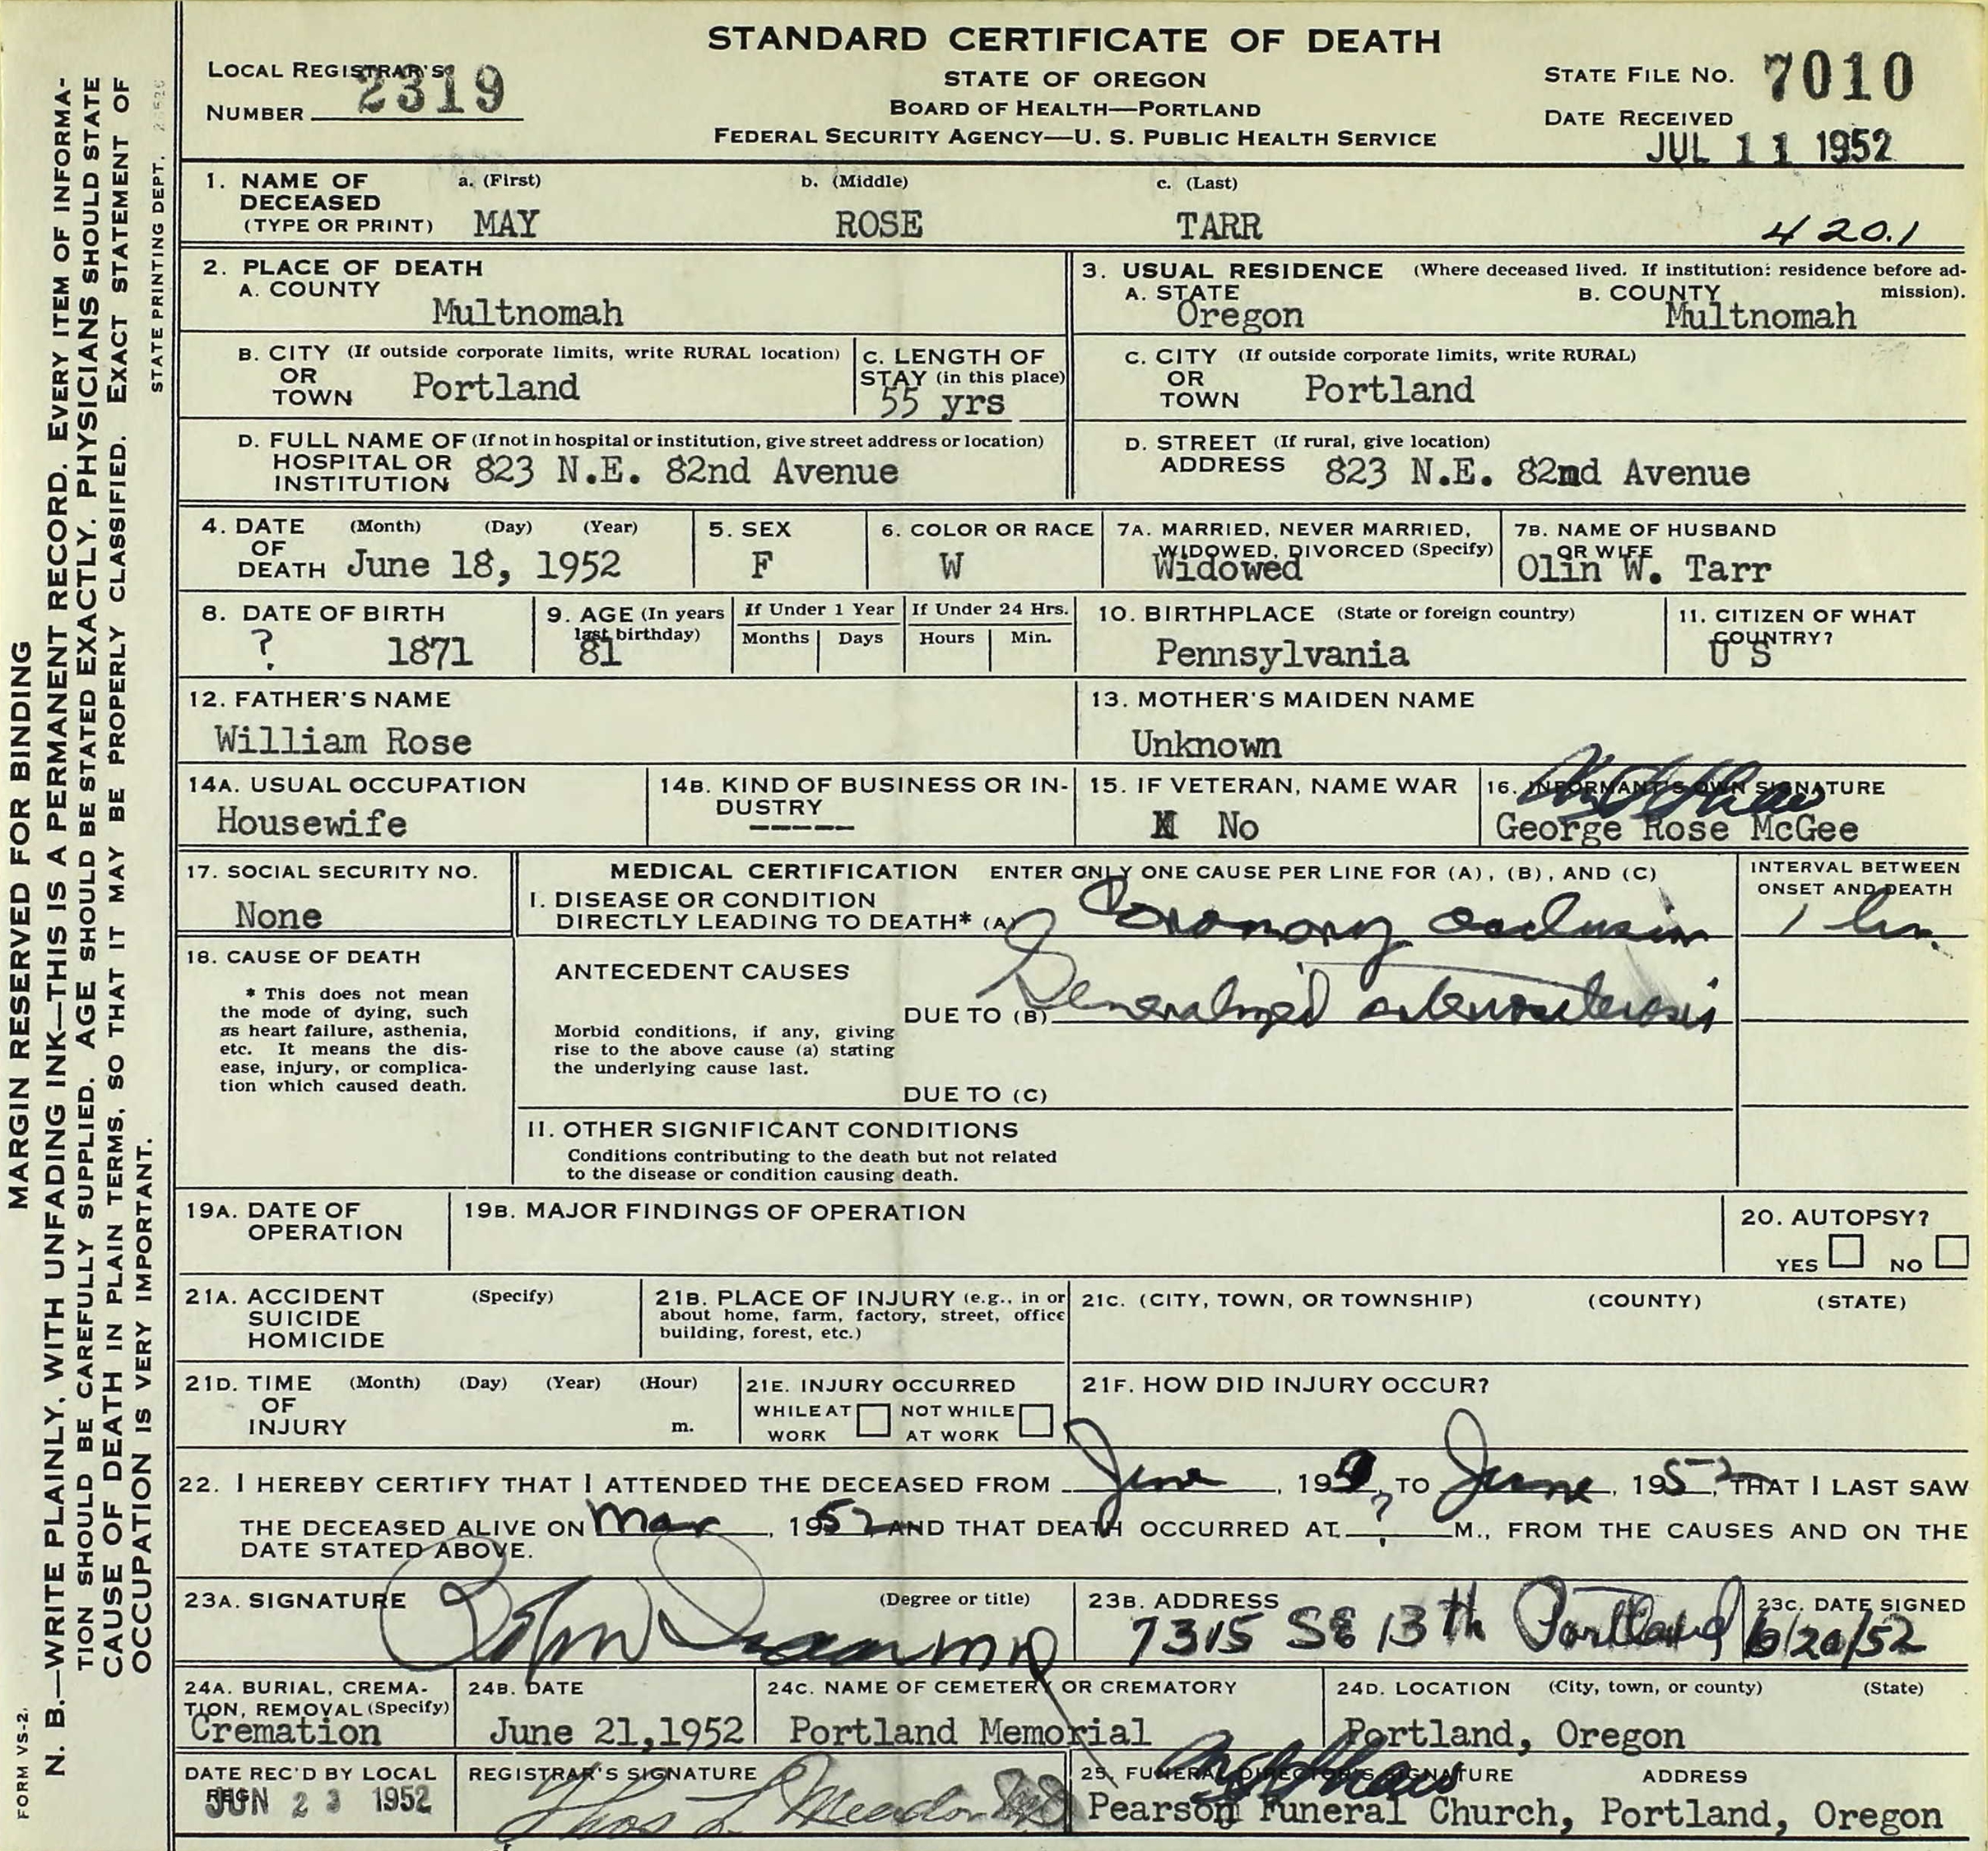 STANDARD CERTIFICATE OF DEATH
STATE OF OREGON
BOARD OF HEALTH—PORTLAND
FEDERAL SECURITY AGENCY—U. S. PUBLIC HEALTH SERVICE
LOCAL REGISTRAR'S
NUMBER 2319
STATE FILE NO. 7010
DATE RECEIVED
JUL 11 1952
1. NAME OF DECEASED (TYPE OR PRINT)
a. (First) b. (Middle) c. (Last)
MAY ROSE TARR
420.1
2. PLACE OF DEATH
A. COUNTY
Multnomah
3. USUAL RESIDENCE (Where deceased lived. If institution: residence before admission).
A. STATE
Oregon
B. COUNTY
Multnomah
B. CITY (If outside corporate limits, write RURAL location)
OR
TOWN Portland
C. LENGTH OF
STAY (in this place)
55 yrs
C. CITY (If outside corporate limits, write RURAL)
OR
TOWN Portland
D. FULL NAME OF (If not in hospital or institution, give street address or location)
HOSPITAL OR
INSTITUTION 823 N.E. 82nd Avenue
D. STREET (If rural, give location)
ADDRESS 823 N.E. 82nd Avenue
4. DATE (Month) (Day) (Year)
OF
DEATH June 18, 1952
5. SEX
F
6. COLOR OR RACE
W
7A. MARRIED, NEVER MARRIED,
WIDOWED, DIVORCED (Specify)
Widowed
7B. NAME OF HUSBAND
OR WIFE
Olin W. Tarr
8. DATE OF BIRTH
? 1871
9. AGE (In years
last birthday)
81
If Under 1 Year
Months Days
If Under 24 Hrs.
Hours Min.
10. BIRTHPLACE (State or foreign country)
Pennsylvania
11. CITIZEN OF WHAT
COUNTRY?
U S
12. FATHER'S NAME
William Rose
13. MOTHER'S MAIDEN NAME
Unknown
14A. USUAL OCCUPATION
Housewife
14B. KIND OF BUSINESS OR IN-
DUSTRY
-----
15. IF VETERAN, NAME WAR
No
16. INFORMANT'S OWN SIGNATURE
George Rose McGee
17. SOCIAL SECURITY NO.
None
MEDICAL CERTIFICATION ENTER ONLY ONE CAUSE PER LINE FOR (A), (B), AND (C)
I. DISEASE OR CONDITION
DIRECTLY LEADING TO DEATH* (A) Coronary occlusion
INTERVAL BETWEEN
ONSET AND DEATH
1 hr.
18. CAUSE OF DEATH
* This does not mean
the mode of dying, such
as heart failure, asthenia,
etc. It means the dis-
ease, injury, or complica-
tion which caused death.
ANTECEDENT CAUSES
DUE TO (B) Generalized arteriosclerosis
Morbid conditions, if any, giving
rise to the above cause (a) stating
the underlying cause last.
DUE TO (C)
II. OTHER SIGNIFICANT CONDITIONS
Conditions contributing to the death but not related
to the disease or condition causing death.
19A. DATE OF
OPERATION
19B. MAJOR FINDINGS OF OPERATION
20. AUTOPSY?
YES NO
21A. ACCIDENT (Specify)
SUICIDE
HOMICIDE
21B. PLACE OF INJURY (e.g., in or
about home, farm, factory, street, office
building, forest, etc.)
21C. (CITY, TOWN, OR TOWNSHIP) (COUNTY) (STATE)
21D. TIME (Month) (Day) (Year) (Hour)
OF
INJURY m.
21E. INJURY OCCURRED
WHILE AT NOT WHILE
WORK AT WORK
21F. HOW DID INJURY OCCUR?
22. I HEREBY CERTIFY THAT I ATTENDED THE DECEASED FROM June, 19 TO June, 1952, THAT I LAST SAW
THE DECEASED ALIVE ON Mar, 1952 AND THAT DEATH OCCURRED AT ? M., FROM THE CAUSES AND ON THE
DATE STATED ABOVE.
23A. SIGNATURE (Degree or title)
MD
23B. ADDRESS
7315 SE 13th Portland
23C. DATE SIGNED
6/20/52
24A. BURIAL, CREMA-
TION, REMOVAL (Specify)
Cremation
24B. DATE
June 21,1952
24C. NAME OF CEMETERY OR CREMATORY
Portland Memorial
24D. LOCATION (City, town, or county) (State)
Portland, Oregon
DATE REC'D BY LOCAL
REG.
JUN 23 1952
REGISTRAR'S SIGNATURE
Thos L Meador MD
25. FUNERAL DIRECTOR'S SIGNATURE ADDRESS
Pearson Funeral Church, Portland, Oregon
MARGIN RESERVED FOR BINDING
N. B.—WRITE PLAINLY, WITH UNFADING INK—THIS IS A PERMANENT RECORD. EVERY ITEM OF INFORMA-
TION SHOULD BE CAREFULLY SUPPLIED. AGE SHOULD BE STATED EXACTLY. PHYSICIANS SHOULD STATE
CAUSE OF DEATH IN PLAIN TERMS, SO THAT IT MAY BE PROPERLY CLASSIFIED. EXACT STATEMENT OF
OCCUPATION IS VERY IMPORTANT.
STATE PRINTING DEPT.
FORM VS-2.